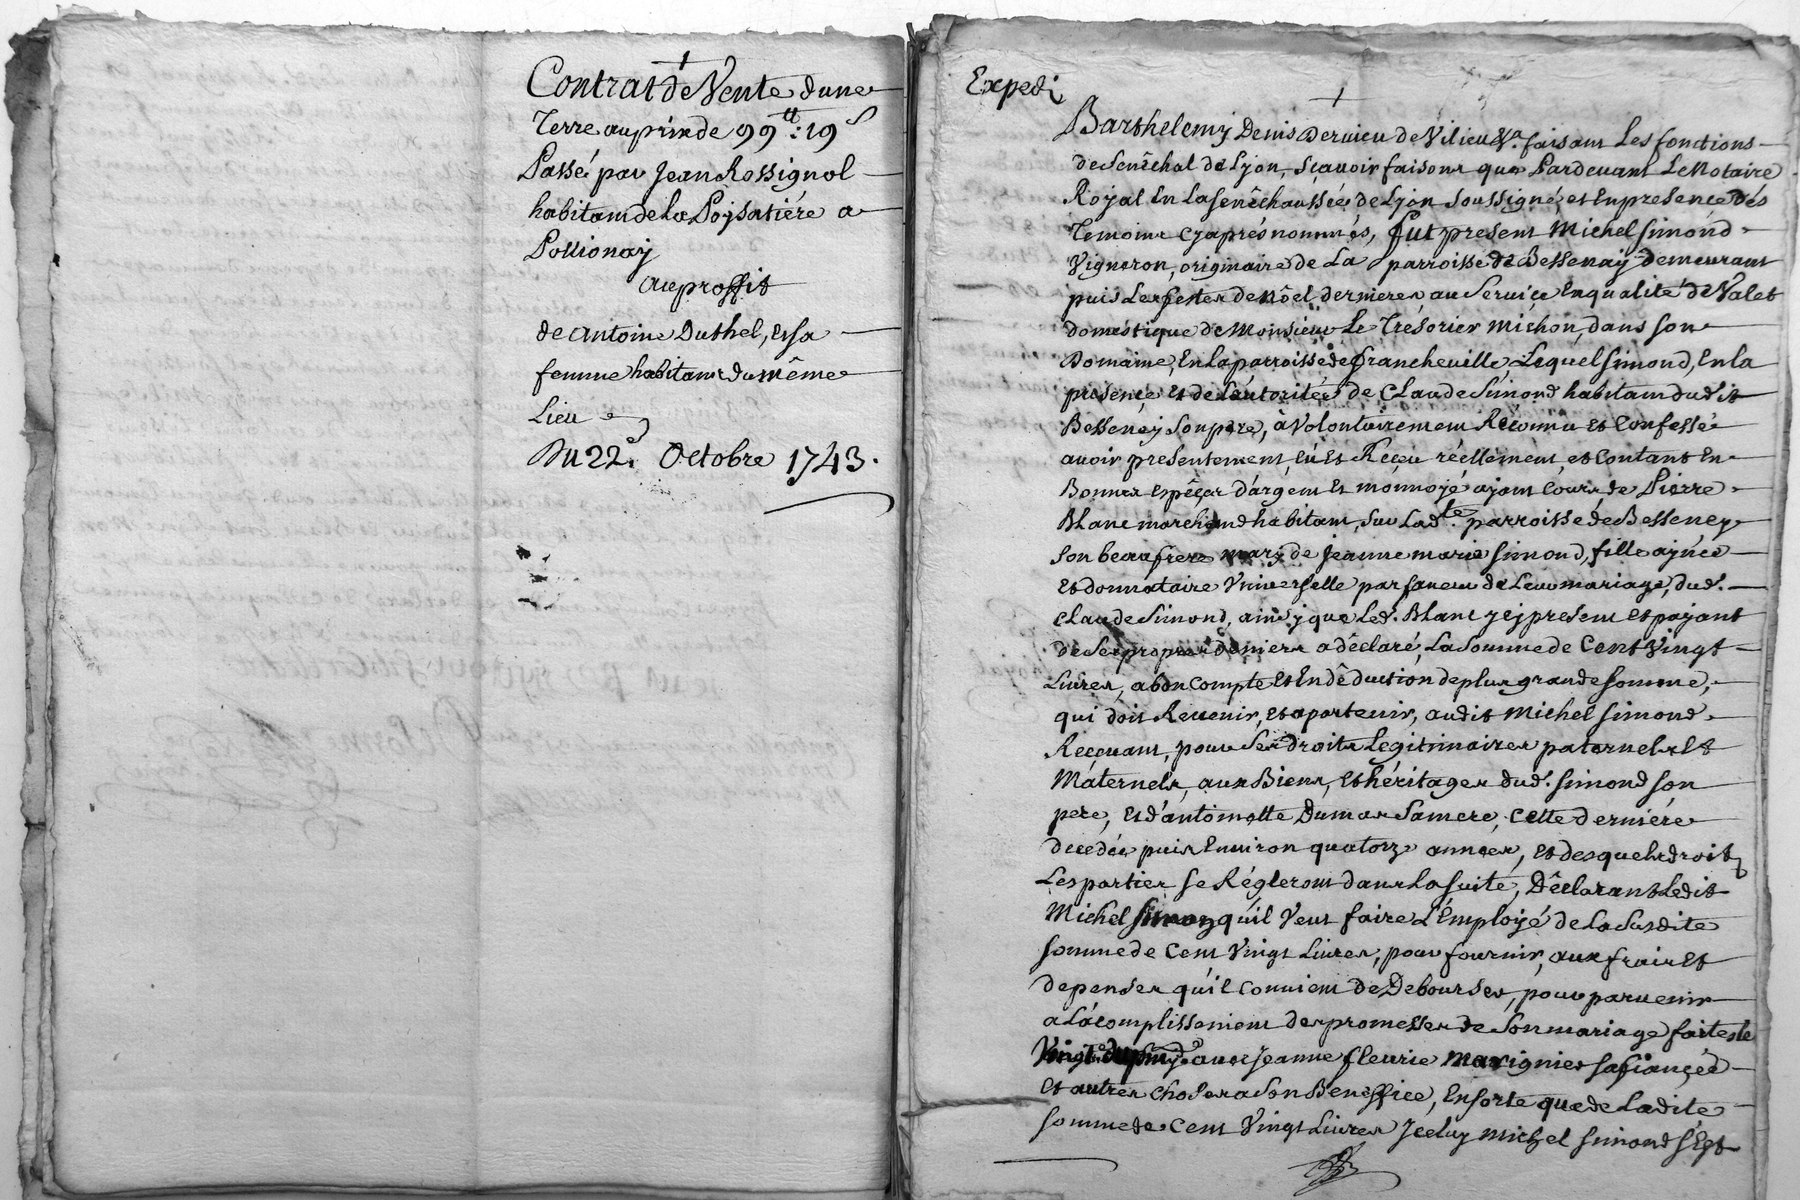 Contrat de Vente d'une
Terre au prix de 99tt : 19s
Passé par Jean Rossignol
habitant de la Poysatiére a
Pollionay
au proffit
de antoine Duthel, et sa
femme habitans du même
Lieu
Du 22e. Octobre 1743.
Expedi
Barthelemy Denis Dervieu de Vilieu Vr. faisant Les fonctions
de Senêchal de Lyon, sçavoir faisons que Pardevant Le Notaire
Royal En La senêchaussée de Lyon Soussigné, et En presence des
Temoins cy aprés nommés, fut present Michel Simond
Vigneron, originaire de La parroisse de Bessenay demeurant
puis Les festes de nôel dernieres au Service En qualité de Valet
domestique de Monsieur Le Trésorier Michon, dans son
Domaine, En la parroisse de francheville Lequel Simond, En la
presence et de L'autorité de Claude Simond habitant dudit
Besseney Son pere, à Volontairement Réconnu et Confessé
avoir presentement, Eû et Reçeu réellement, et Contant En
Bonnes Espêces d'argent et monnoyé ayant Cours, de Pierre
Blanc marchand habitant, Sur Ladte. parroisse de Besseney
Son beaufrere mary de Jeanne marie Simond, fille aynée
Et donnataire Universelle par faveur de Leur mariage, dud.
Claude Simond, ainsy que Led. Blanc yçy present et payant
de Ses propres deniers a dêclaré, La Somme de Cent Vingt
Livres, a bon Compte et En dêduction de plus grande Somme,
qui doit Revenir, et apartenir, audit Michel Simond
Reçevant, pour Ses droits Legitimaires paternels Et
Máternels, aux Biens, et héritages dud. Simond son
pere, Et d'antoinette Dumas Sa mere, Cette derniére
decedée puis Environ quatorze années, et desquels droits
Les parties se Régleront dans La suite, Dêclarant Ledit
Michel Simond qu'il Veut faire L'Employé de La Susdite
Somme de Cent Vingt Livres, pour fournir, aux frais et
depenses qu'il Convient de Debourser, pour parvenir
a L'acomplissement des promesses de Son mariage faites le
Vingt avec Jeanne fleurie Marignier Sa fiançée
Et autres Choses a Son Beneffice, En sorte que de Ladite
Somme de Cent Vingt Livres Jceluy Michel Simond S'est